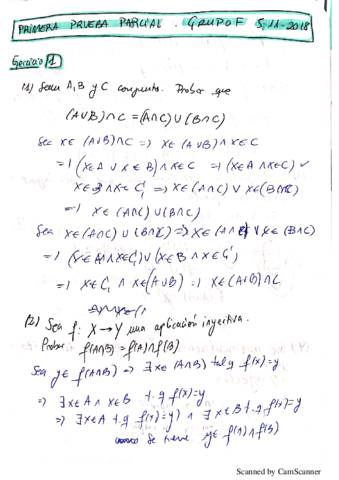 PRIMERA PRUEBA PARCIAL. GRUPO F 5-11-2018
Ejercicio 1
(1) Sean A, B y C conjuntos. Probar que
(A∪B)∩C = (A∩C)∪(B∩C)
Sea x∈ (A∪B)∩C ⇒ x∈ (A∪B) ∧ x∈C
⇒ (x∈A ∨ x∈B) ∧ x∈C ⇒ (x∈A ∧ x∈C) ∨
x∈B ∧ x∈C ⇒ x∈(A∩C) ∨ x∈(B∩C)
⇒ x∈ (A∩C) ∪ (B∩C)
Sea x∈(A∩C) ∪ (B∩C) ⇒ x∈ (A∩C) ∨ x∈ (B∩C)
⇒ (x∈A ∧ x∈C) ∨ (x∈B ∧ x∈C)
⇒ x∈C ∧ x∈(A∪B) ⇒ x∈(A∪B)∩C
(2) Sea f: X→Y una aplicación inyectiva.
Probar f(A∩B) = f(A)∩f(B)
Sea y∈ f(A∩B) ⇒ ∃x∈ (A∩B) tal q f(x)=y
⇒ ∃x∈A ∧ x∈B t.q f(x)=y
⇒ ∃x∈A t.q f(x)=y ∧ ∃x∈B t.q f(x)=y
Se tiene y∈ f(A)∩f(B)
Scanned by CamScanner